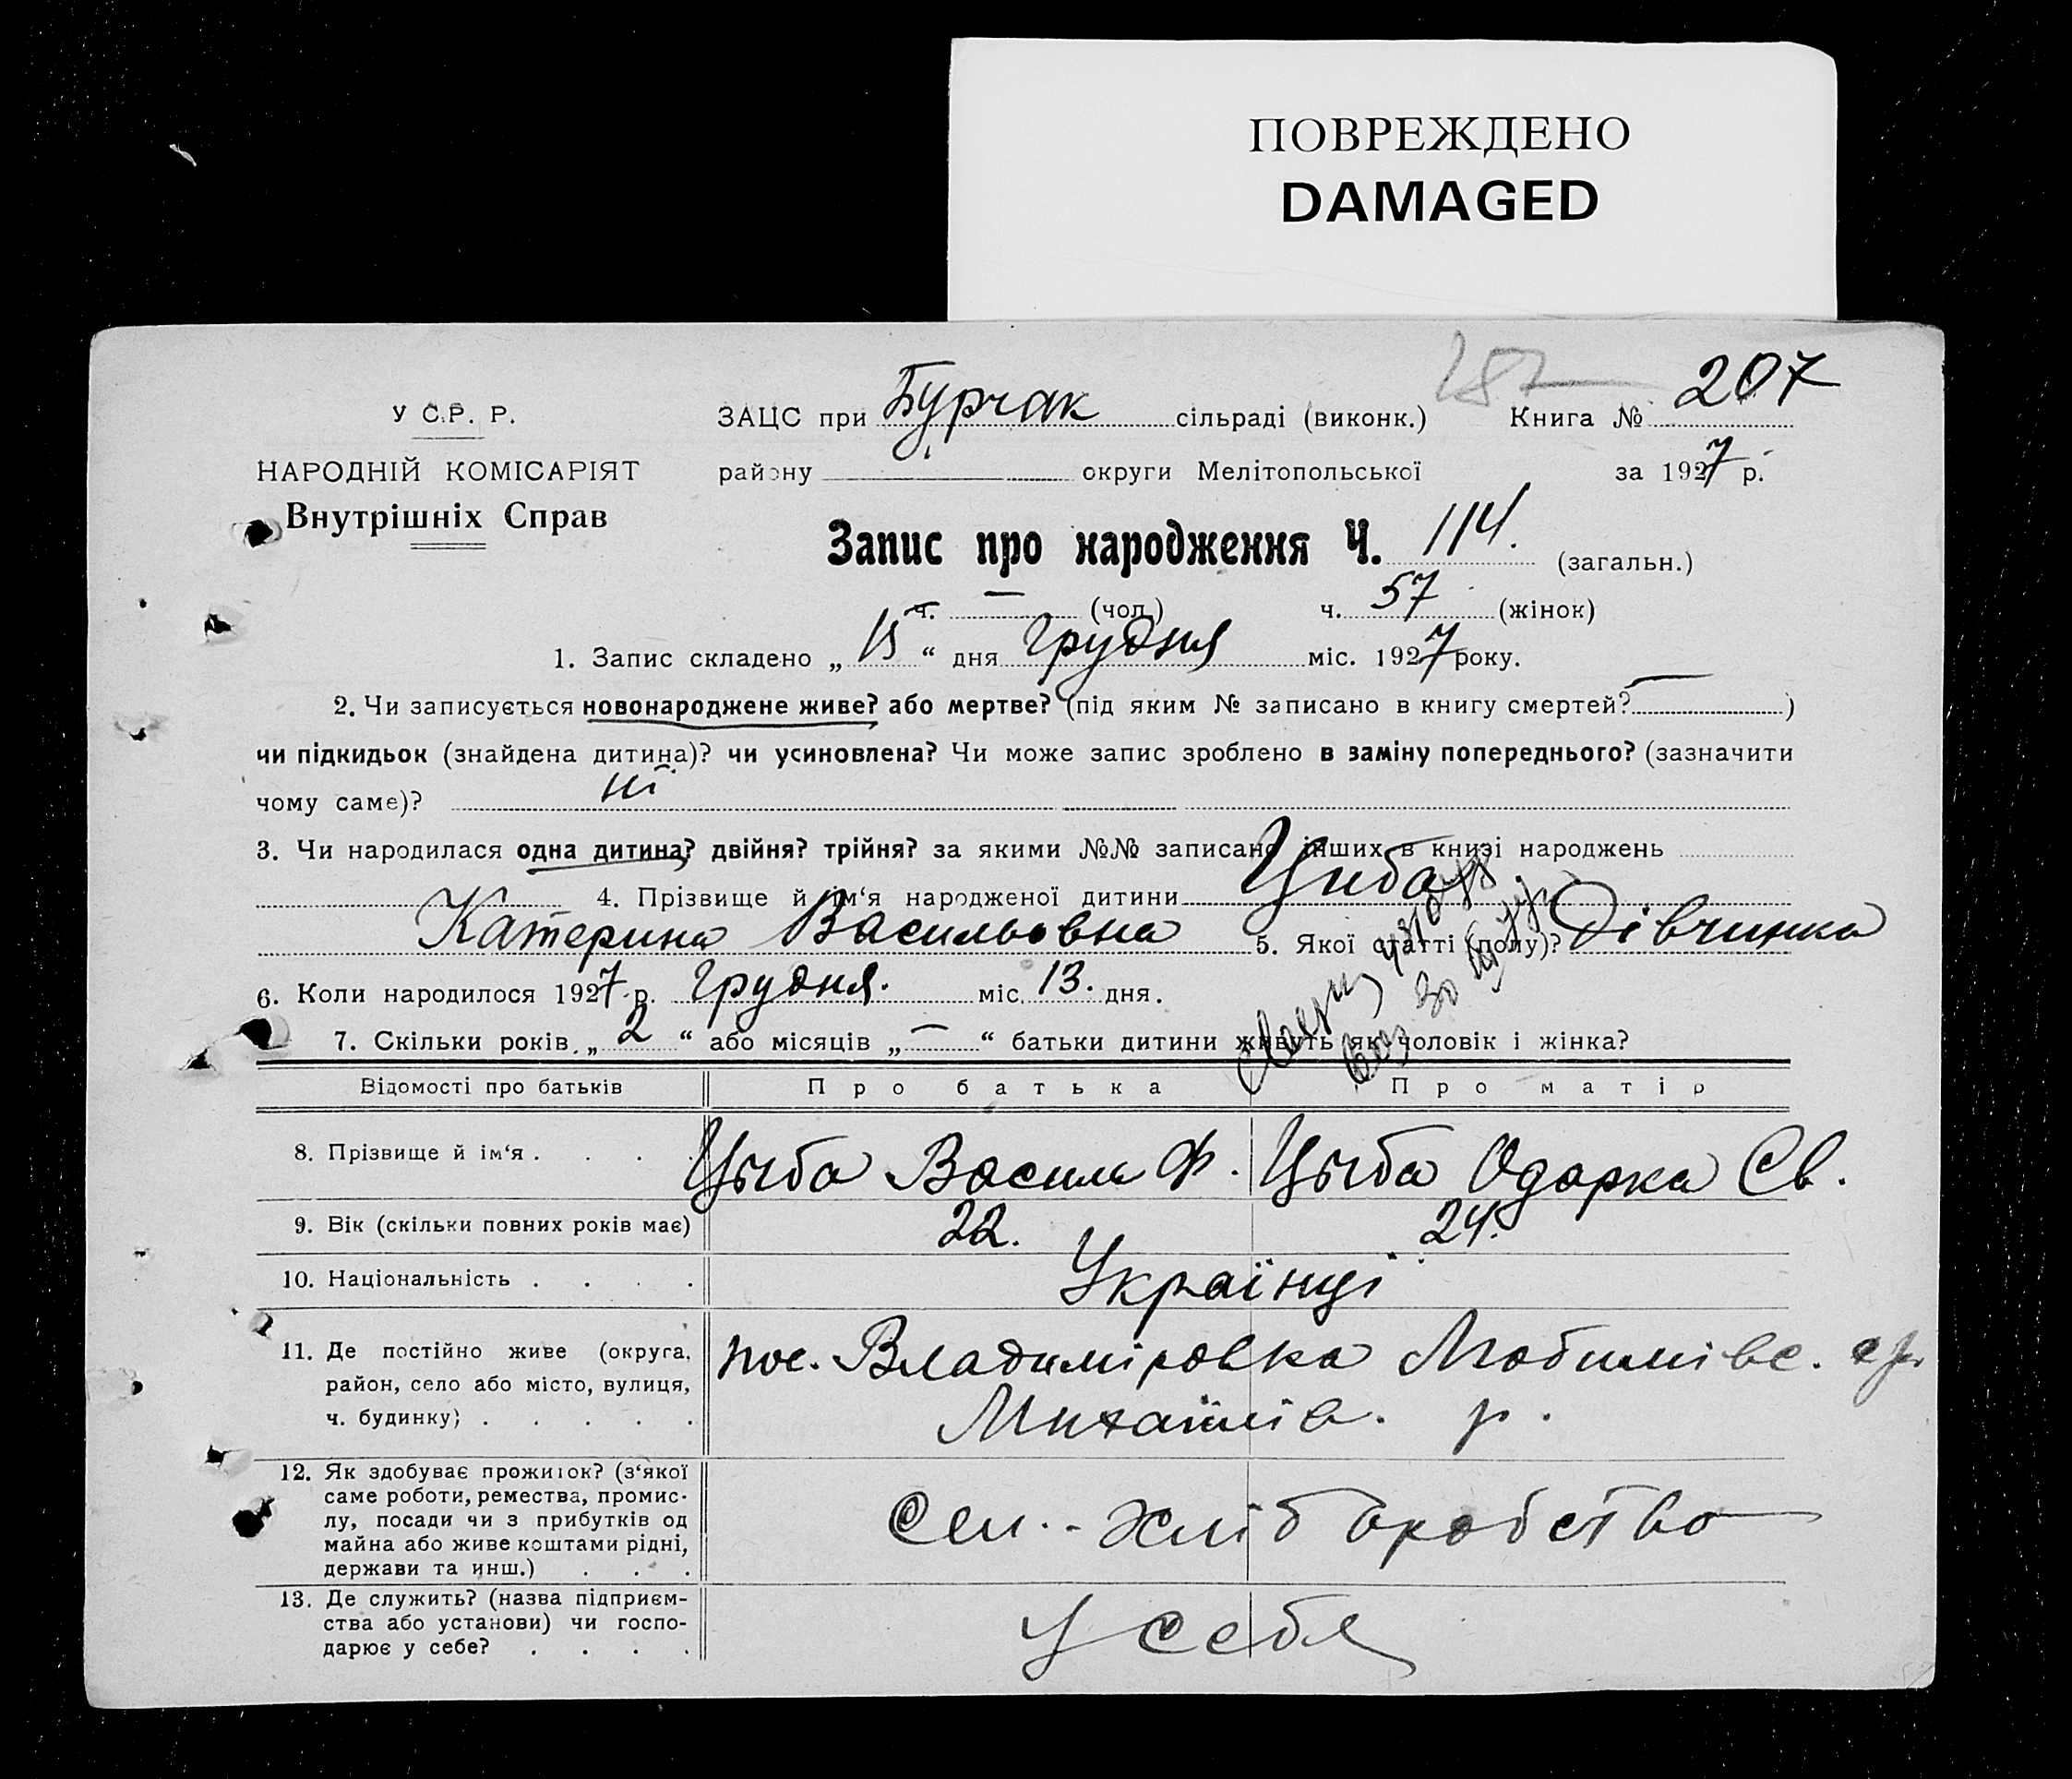 ПОВРЕЖДЕНО
DAMAGED
207
У С.Р. Р. ЗАЦС при Бурчак сільраді (виконк.) Книга №
НАРОДНІЙ КОМІСАРІЯТ району округи Мелітопольської за 1927 р.
Внутрішніх Справ
Запис про народження Ч. 114. (загальн.)
ч. — (чол.) ч. 57 (жінок)
1. Запис складено „ 15 “ дня Грудня міс. 1927 року.
2. Чи записується новонароджене живе? або мертве? (під яким № записано в книгу смертей? — )
чи підкидьок (знайдена дитина)? чи усиновлена? Чи може запис зроблено в заміну попереднього? (зазначити
чому саме)? ні
3. Чи народилася одна дитина? двійня? трійня? за якими №№ записано інших в книзі народжень
4. Прізвище й ім‘я народженої дитини Циба
Катерина Васильовна 5. Якої статті (полу)? Дівчинка
6. Коли народилося 1927 р. Грудня. міс. 13. дня.
7. Скільки років „ 2 “ або місяців „ — “ батьки дитини живуть як чоловік і жінка?
Відомості про батьків Про батька Про матір
8. Прізвище й ім‘я . . . . Цыба Васил Ф. Цыба Одарка Св.
9. Вік (скільки повних років має) 22. 24.
10. Національність . . . . Українці
11. Де постійно живе (округа, пос. Владиміровка Любимівс. ср.
район, село або місто, вулиця,
ч. будинку) . . . . . Михайлів. р.
12. Як здобуває прожиток? (з‘якої
саме роботи, ремества, промис-
лу, посади чи з прибутків од Сел.-хліборобство
майна або живе коштами рідні,
держави та инш.) . . .
13. Де служить? (назва підприєм-
ства або установи) чи госпо- У себя
дарює у себе? . . . .